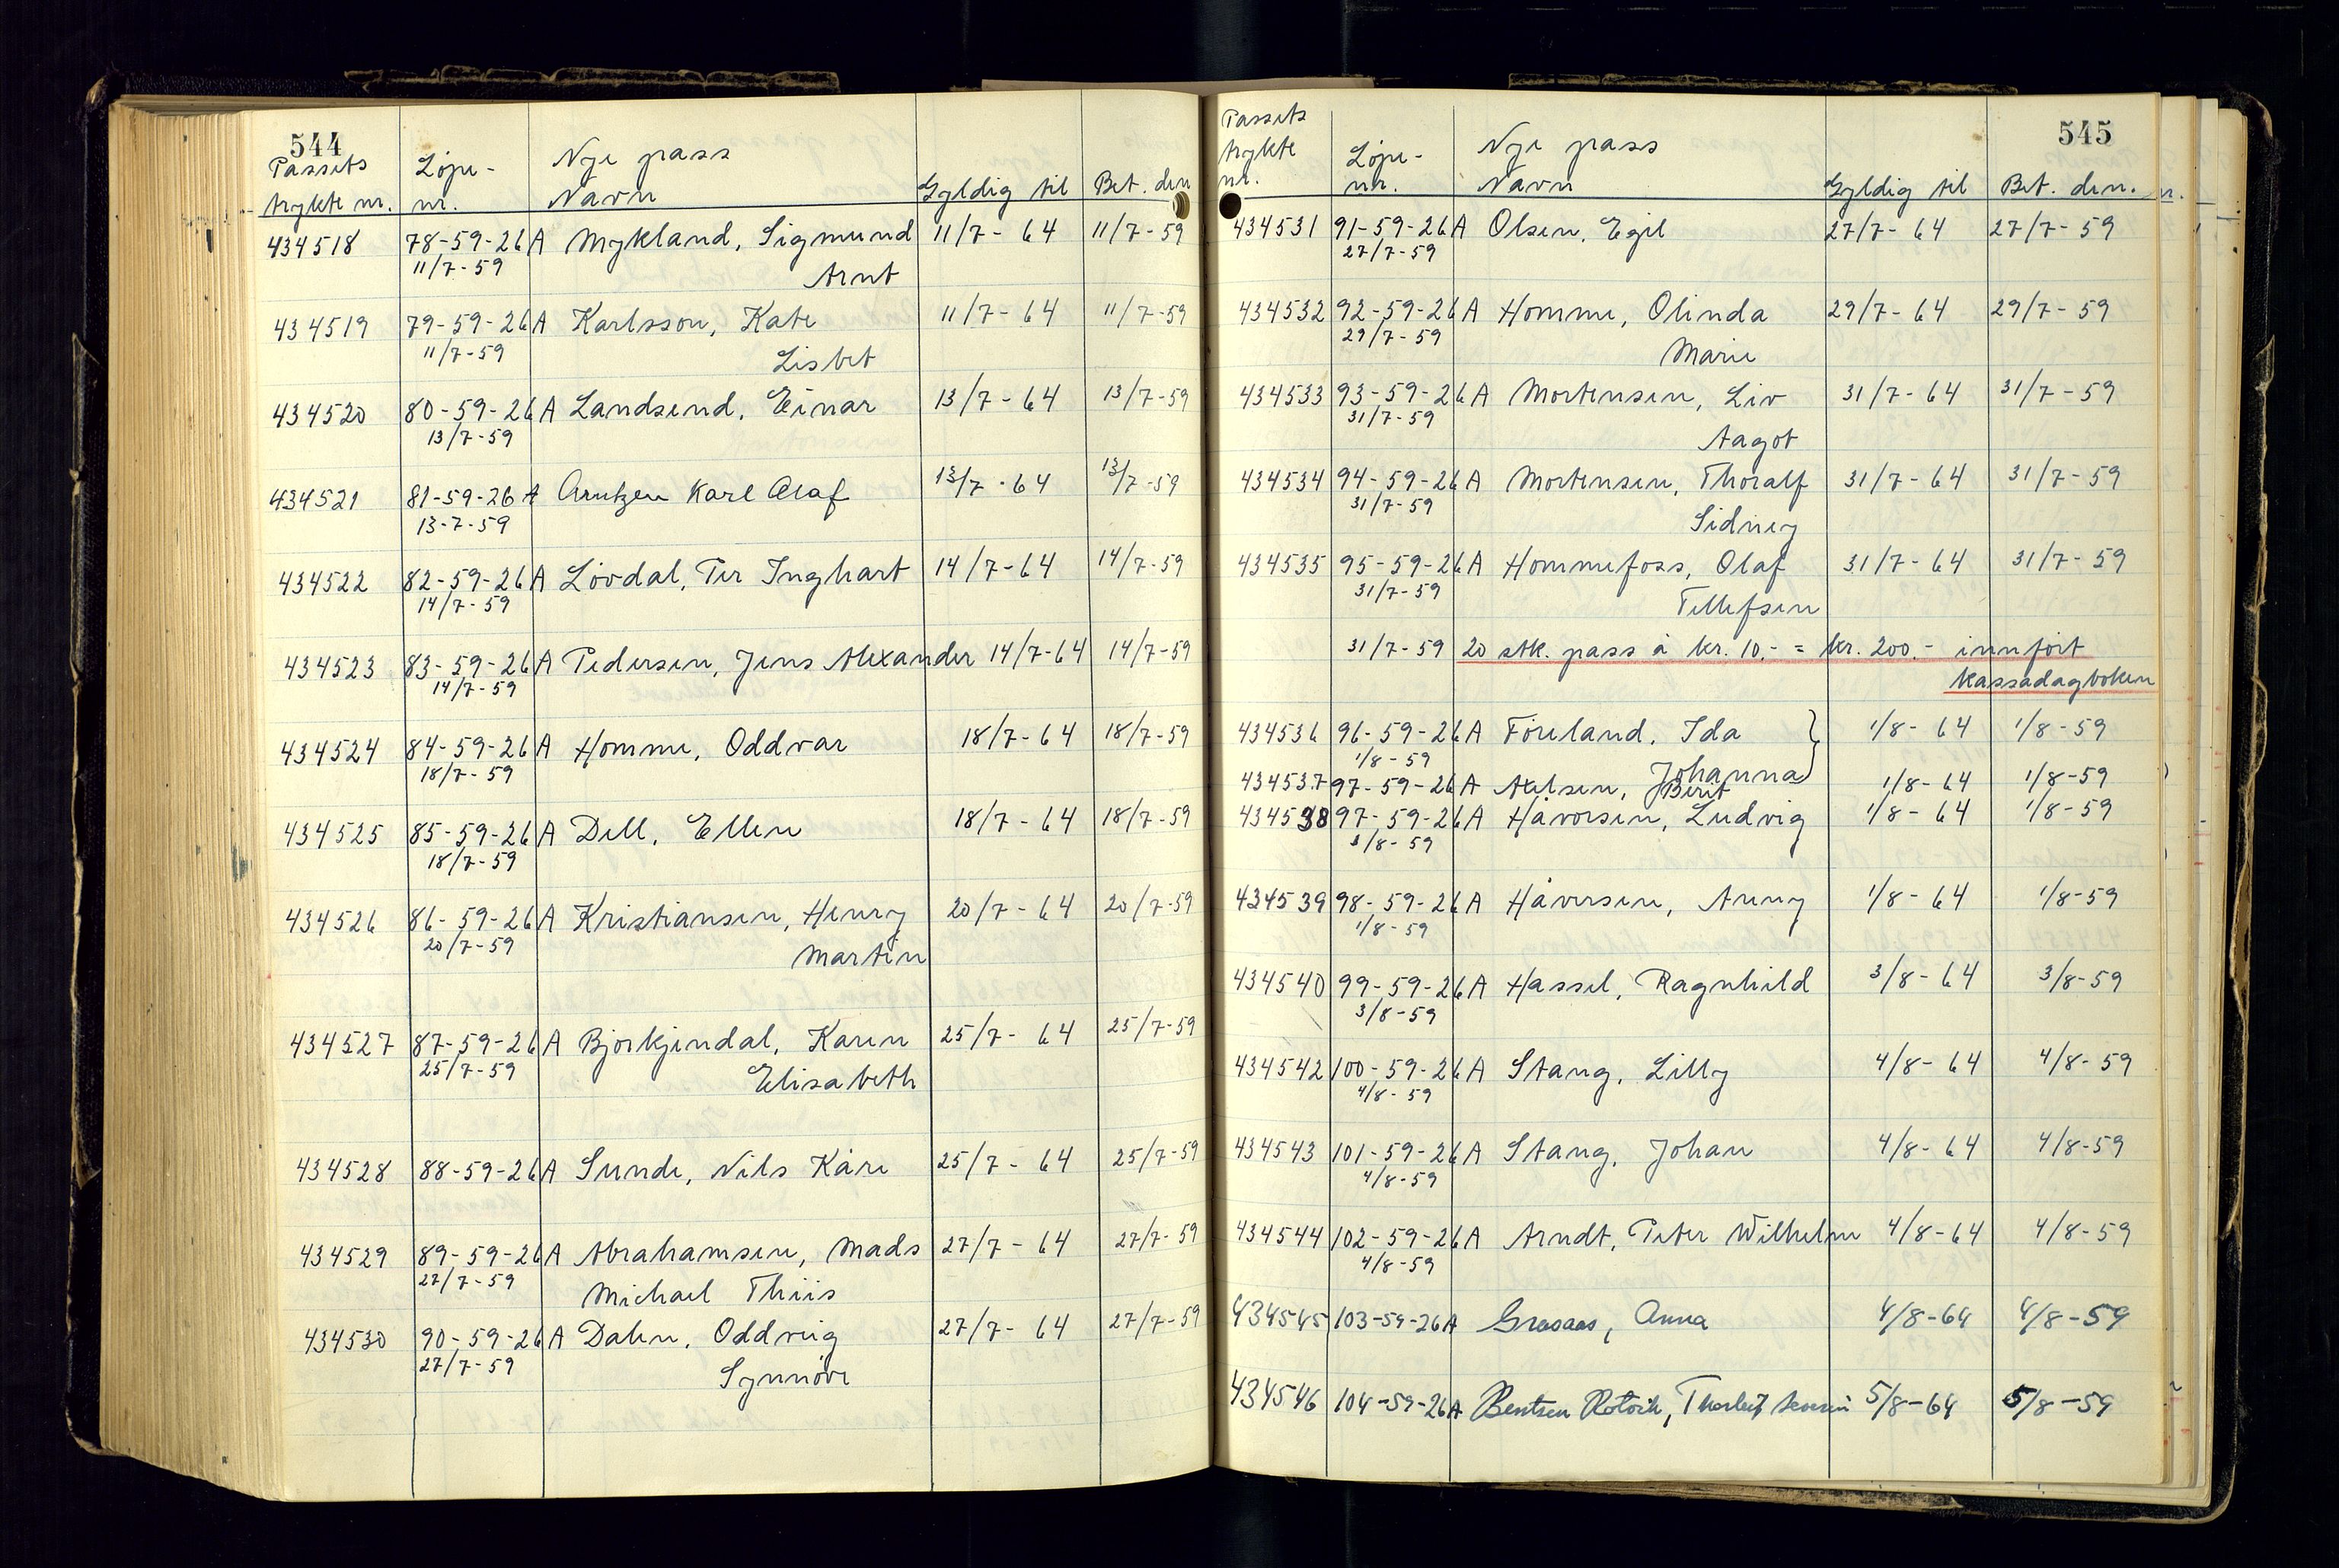 544
Passets Löpe- Nye pass
trykte nr. nr. Navn Gyldig til Bet. den
434518 78-59-26A Mykland, Sigmund 11/7- 64 11/7-59
11/7-59 Arnt
434519 79-59-26A Karlsson, Kate 11/7- 64 11/7-59
11/7-59 Lisbet
434520 80-59-26A Landsend, Einar 13/7-64 13/7-59
13/7-59
434521 81-59-26A Arntzen Karl Olaf 13/7-64 13/7-59
13-7-59
434522 82-59-26A Lövdal, Per Inghart 14/7-64 14/7-59
14/7-59
434523 83-59-26A Pedersen, Jens Alexander 14/7-64 14/7-59
14/7-59
434524 84-59-26A Homme, Oddvar 18/7-64 18/7-59
18/7-59
434525 85-59-26A Dell, Ellen 18/7-64 18/7-59
18/7-59
434526 86-59-26A Kristiansen, Henry 20/7-64 20/7-59
20/7-59 Martin
434527 87-59-26A Bjorkjendal, Karen 25/7- 64 25/7-59
25/7-59 Elisabeth
434528 88-59-26A Sunde, Nils Kåre 25/7- 64 25/7-59
434529 89-59-26A Abrahamsen, Mads 27/7- 64 27/7-59
27/7-59 Michael Thiis
434530 90-59-26A Dalen, Oddveig 27/7- 64 27/7-59
27/7-59 Synnöve
545
Passets
trykte Löpe- Nye pass
nr. nr. Navn Gyldig til Bet. den.
434531 91-59-26A Olsen, Egil 27/7-64 27/7-59
27/7-59
434532 92-59-26A Homme, Olinda 29/7-64 29/7-59
29/7-59 Marie
434533 93-59-26A Mortensen, Liv 31/7-64 31/7-59
31/7-59 Aagot
434534 94-59-26A Mortensen, Thoralf 31/7-64 31/7-59
31/7-59 Sidney
434535 95-59-26A Hommefoss, Olaf 31/7-64 31/7-59
31/7-59 Tellefsen
31/7-59 20 stk. pass à kr. 10,- = kr. 200,- innfört
kassadagboken
434536 96-59-26A Föreland, Ida } 1/8- 64 1/8-59
1/8-59 Johanna
434537 97-59-26A Axelsen, Berit 1/8-64 1/8-59
434538 97-59-26A Håvorsen, Ludvig 1/8- 64 1/8-59
1/8-59
434539 98-59-26A Håversen, Anny 1/8- 64 1/8-59
1/8-59
434540 99-59-26A Hassel, Ragnhild 3/8- 64 3/8-59
3/8-59
434542 100-59-26A Stang, Lilly 4/8- 64 4/8-59
4/8-59
434543 101-59-26A Stang, Johan 4/8- 64 4/8-59
4/8-59
434544 102-59-26A Arndt, Peter Wilhelm 4/8-64 4/8-59
4/8-59
434545 103-59-26A Grosaas, Anna 4/8-64 4/8-59
434546 104-59-26A Bentsen 5/8-64 5/8-59